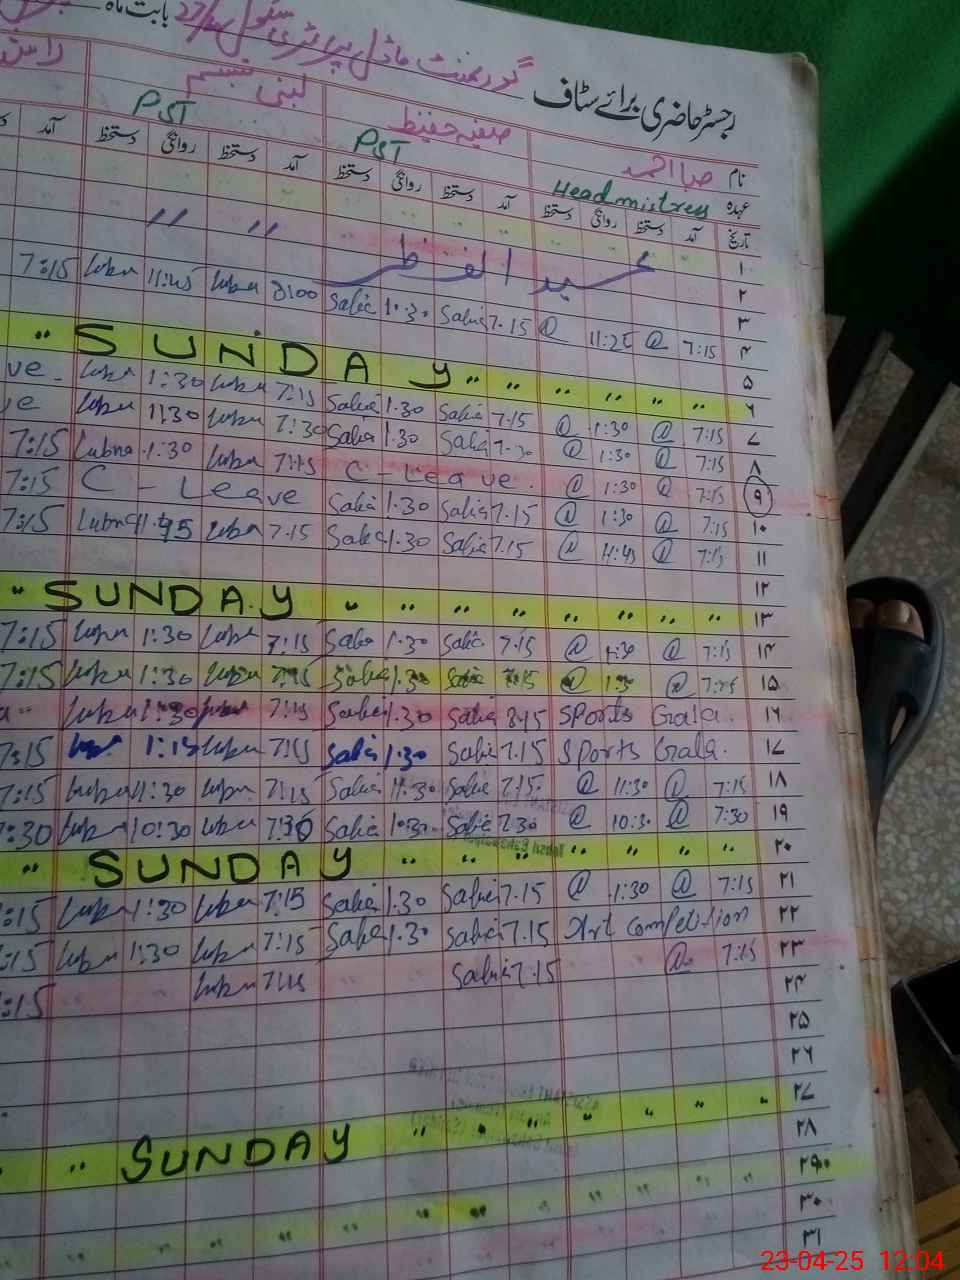 رجسٹر حاضری برائے سٹاف گورنمنٹ ماڈل پرائمری سکول بابت ماہ
نام صبا احمد صفیہ حفیظ لبنی تبسم
عہدہ Headmistress PST PST
تاریخ آمد دستخط روانگی دستخط آمد دستخط روانگی دستخط آمد دستخط روانگی دستخط آمد
۱
۲ عید الفطر " "
۳
۴ 7:15 @ 11:25 @ 7.15 Sabie 10:30 Sabie 8:00 Lubna 11:45 Lubna 7:15
۵
۶ SUNDAY " " " " " "
۷ 7:15 @ 1:30 @ 7.15 Sabie 1.30 Sabie 7:15 Lubna 1:30 Lubna ve
۸ 7:15 @ 1:30 @ 7.30 Sabie 1.30 Sabie 7:30 Lubna 1:30 Lubna
۹ 7:15 @ 1:30 @ C-Leave 7:15 Lubna 1:30 Lubna 7:15
۱۰ 7:15 @ 1:30 @ 7.15 Sabie 1.30 Sabie C-Leave 7:15
۱۱ 7:15 @ 11:45 @ 7.15 Sabie 1.30 Sabie 7.15 Lubna 11:45 Lubna 7:15
۱۲
۱۳ " SUNDAY " " " " " " "
۱۴ 7:15 @ 1:30 @ 7.15 Sabie 1.30 Sabie 7:15 Lubna 1:30 Lubna 7:15
۱۵ 7:15 @ 1:30 @ 7:15 Sabie 1.30 Sabie 7:15 Lubna 1:30 Lubna 7:15
۱۶ Sports Gala. 8:15 Sabie 1.30 Sabie 7:15 Lubna 1:30 Lubna
۱۷ Sports Gala. 7.15 Sabie 1.30 Sabie 7:15 Lubna 1:15 7:15
۱۸ 7:15 @ 11:30 @ 7.15 Sabie 11:30 Sabie 7:15 Lubna 11:30 Lubna 7:15
۱۹ 7:30 @ 10:30 @ 7.30 Sabie 10:30 Sabie 7:30 Lubna 10:30 Lubna 7:30
۲۰ " SUNDAY " " " " " " "
۲۱ 7:15 @ 1:30 @ 7.15 Sabie 1.30 Sabie 7:15 Lubna 1:30 Lubna :15
۲۲ Art Competition 7.15 Sabie 1.30 Sabie 7:15 Lubna 1:30 Lubna :15
۲۳ 7:15 @ 7.15 Sabie 7:15 Lubna :15
۲۴
۲۵
۲۶
۲۷ " SUNDAY " " " " " " "
۲۸
۲۹
۳۰
۳۱
23-04-25 12:04